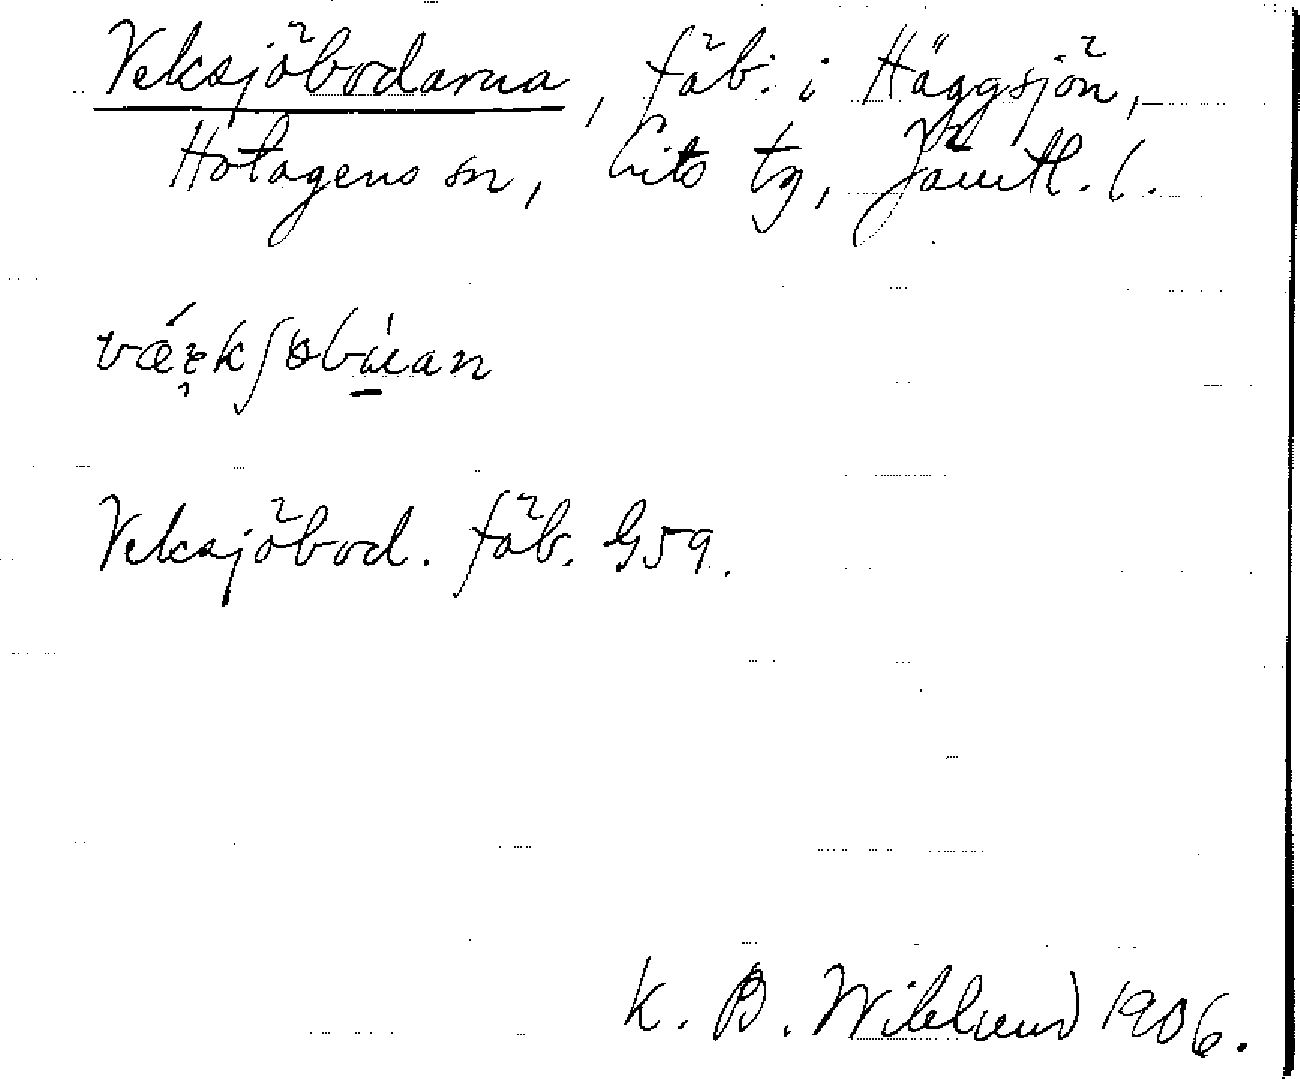 Veksjöbodarna, fäb. i Häggsjön,
Hotagens sn, Lits tg, Jämtl. l.
Veksjöbod. fäb. G59.
K. B. Wiklund 1906.